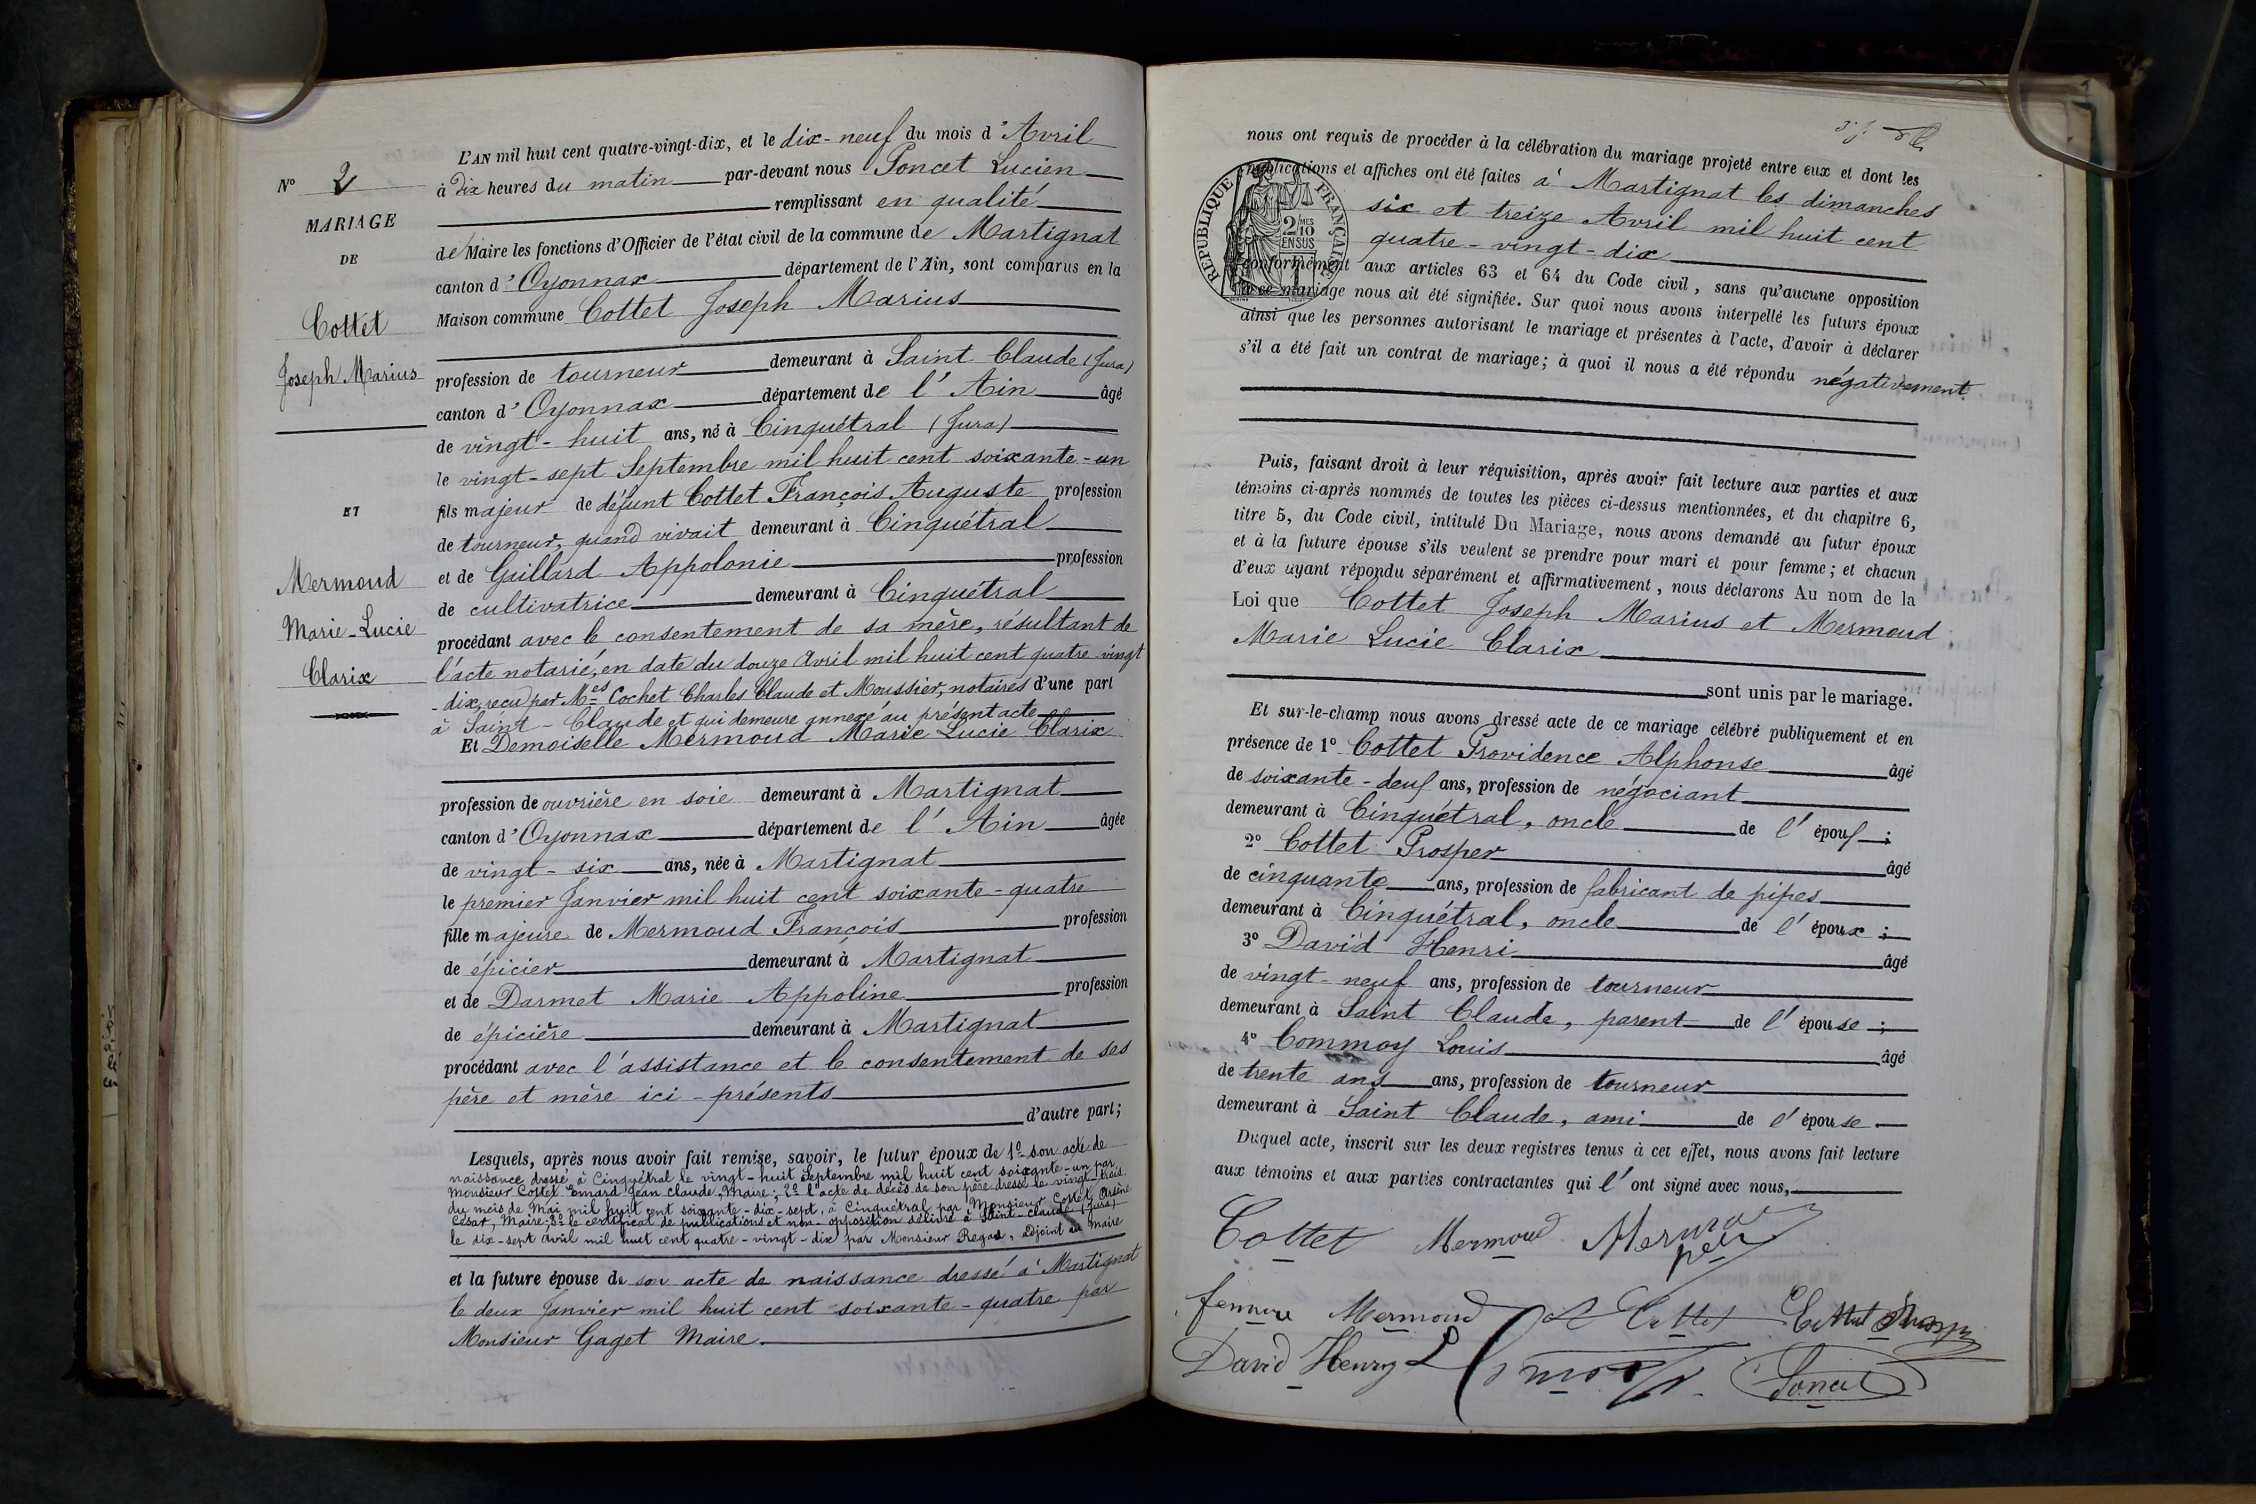 N° 2
MARIAGE
DE
Cottet
Joseph Marius
ET
Mermoud
Marie-Lucie
Clarix
L'AN mil huit cent quatre-vingt-dix, et le dix-neuf du mois d'Avril
à dix heures du matin par-devant nous Poncet Lucien
remplissant en qualité
de Maire les fonctions d'Officier de l'état civil de la commune de Martignat
canton d'Oyonnax département de l'Ain, sont comparus en la
Maison commune Cottet Joseph Marius
profession de tourneur demeurant à Saint Claude (Jura)
canton d'Oyonnax département de l'Ain âgé
de vingt-huit ans, né à Cinquétral (Jura)
le vingt-sept Septembre mil huit cent soixante-un
fils majeur de défunt Cottet François Auguste profession
de tourneur, quand vivait demeurant à Cinquétral
et de Gaillard Appolonie profession
de cultivatrice demeurant à Cinquétral
procédant avec le consentement de sa mère, résultant de
l'acte notarié, en date du douze Avril mil huit cent quatre vingt
-dix, reçu par Mes Cochet Charles Claude et Moussier, notaires d'une part
à Saint-Claude et qui demeure annexé au présent acte
Et Demoiselle Mermoud Marie Lucie Clarix
profession de ouvrière en soie demeurant à Martignat
canton d'Oyonnax département de l'Ain âgée
de vingt-six ans, née à Martignat
le premier Janvier mil huit cent soixante-quatre
fille majeure de Mermoud François profession
de épicier demeurant à Martignat
et de Darmet Marie Appoline profession
de épicière demeurant à Martignat
procédant avec l'assistance et le consentement de ses
père et mère ici-présents
d'autre part;
Lesquels, après nous avoir fait remise, savoir, le futur époux de 1° son acte de
naissance dressé à Cinquétral le vingt-huit Septembre mil huit cent soixante-un par
Monsieur Cottet Emard Jean Claude, Maire; 2° l'acte de décès de son père dressé le vingt-trois
du mois de Mai mil huit cent soixante-dix-sept, à Cinquétral par Monsieur Cottet Arsène
César, Maire; 3° le certificat de publications et non-opposition délivré à Saint-Claude (Jura)
le dix-sept Avril mil huit cent quatre-vingt-dix par Monsieur Regad, adjoint au Maire
et la future épouse de son acte de naissance dressé à Martignat
le deux Janvier mil huit cent soixante-quatre par
Monsieur Gaget Maire.
nous ont requis de procéder à la célébration du mariage projeté entre eux et dont les
publications et affiches ont été faites à Martignat les dimanches
six et treize Avril mil huit cent
quatre-vingt-dix
conformément aux articles 63 et 64 du Code civil, sans qu'aucune opposition
à ce mariage nous ait été signifiée. Sur quoi nous avons interpellé les futurs époux
ainsi que les personnes autorisant le mariage et présentes à l'acte, d'avoir à déclarer
s'il a été fait un contrat de mariage; à quoi il nous a été répondu négativement
RÉPUBLIQUE FRANÇAISE
2/10MES
EN SUS
Puis, faisant droit à leur réquisition, après avoir fait lecture aux parties et aux
témoins ci-après nommés de toutes les pièces ci-dessus mentionnées, et du chapitre 6,
titre 5, du Code civil, intitulé Du Mariage, nous avons demandé au futur époux
et à la future épouse s'ils veulent se prendre pour mari et pour femme; et chacun
d'eux ayant répondu séparément et affirmativement, nous déclarons Au nom de la
Loi que Cottet Joseph Marius et Mermoud
Marie Lucie Clarix
sont unis par le mariage.
Et sur-le-champ nous avons dressé acte de ce mariage célébré publiquement et en
présence de 1° Cottet Providence Alphonse âgé
de soixante-deux ans, profession de négociant
demeurant à Cinquétral, oncle de l'époux;
2° Cottet Prosper âgé
de cinquante ans, profession de fabricant de pipes
demeurant à Cinquétral, oncle de l'époux;
3° David Henri âgé
de vingt-neuf ans, profession de tourneur
demeurant à Saint Claude, parent de l'épouse;
4° Commoy Louis âgé
de trente ans ans, profession de tourneur
demeurant à Saint Claude, ami de l'épouse.
Duquel acte, inscrit sur les deux registres tenus à cet effet, nous avons fait lecture
aux témoins et aux parties contractantes qui l'ont signé avec nous,
Cottet Mermoud Mermoud
père
femme Mermoud A Cottet Cottet Prosper
David Henry L Commoy Poncet